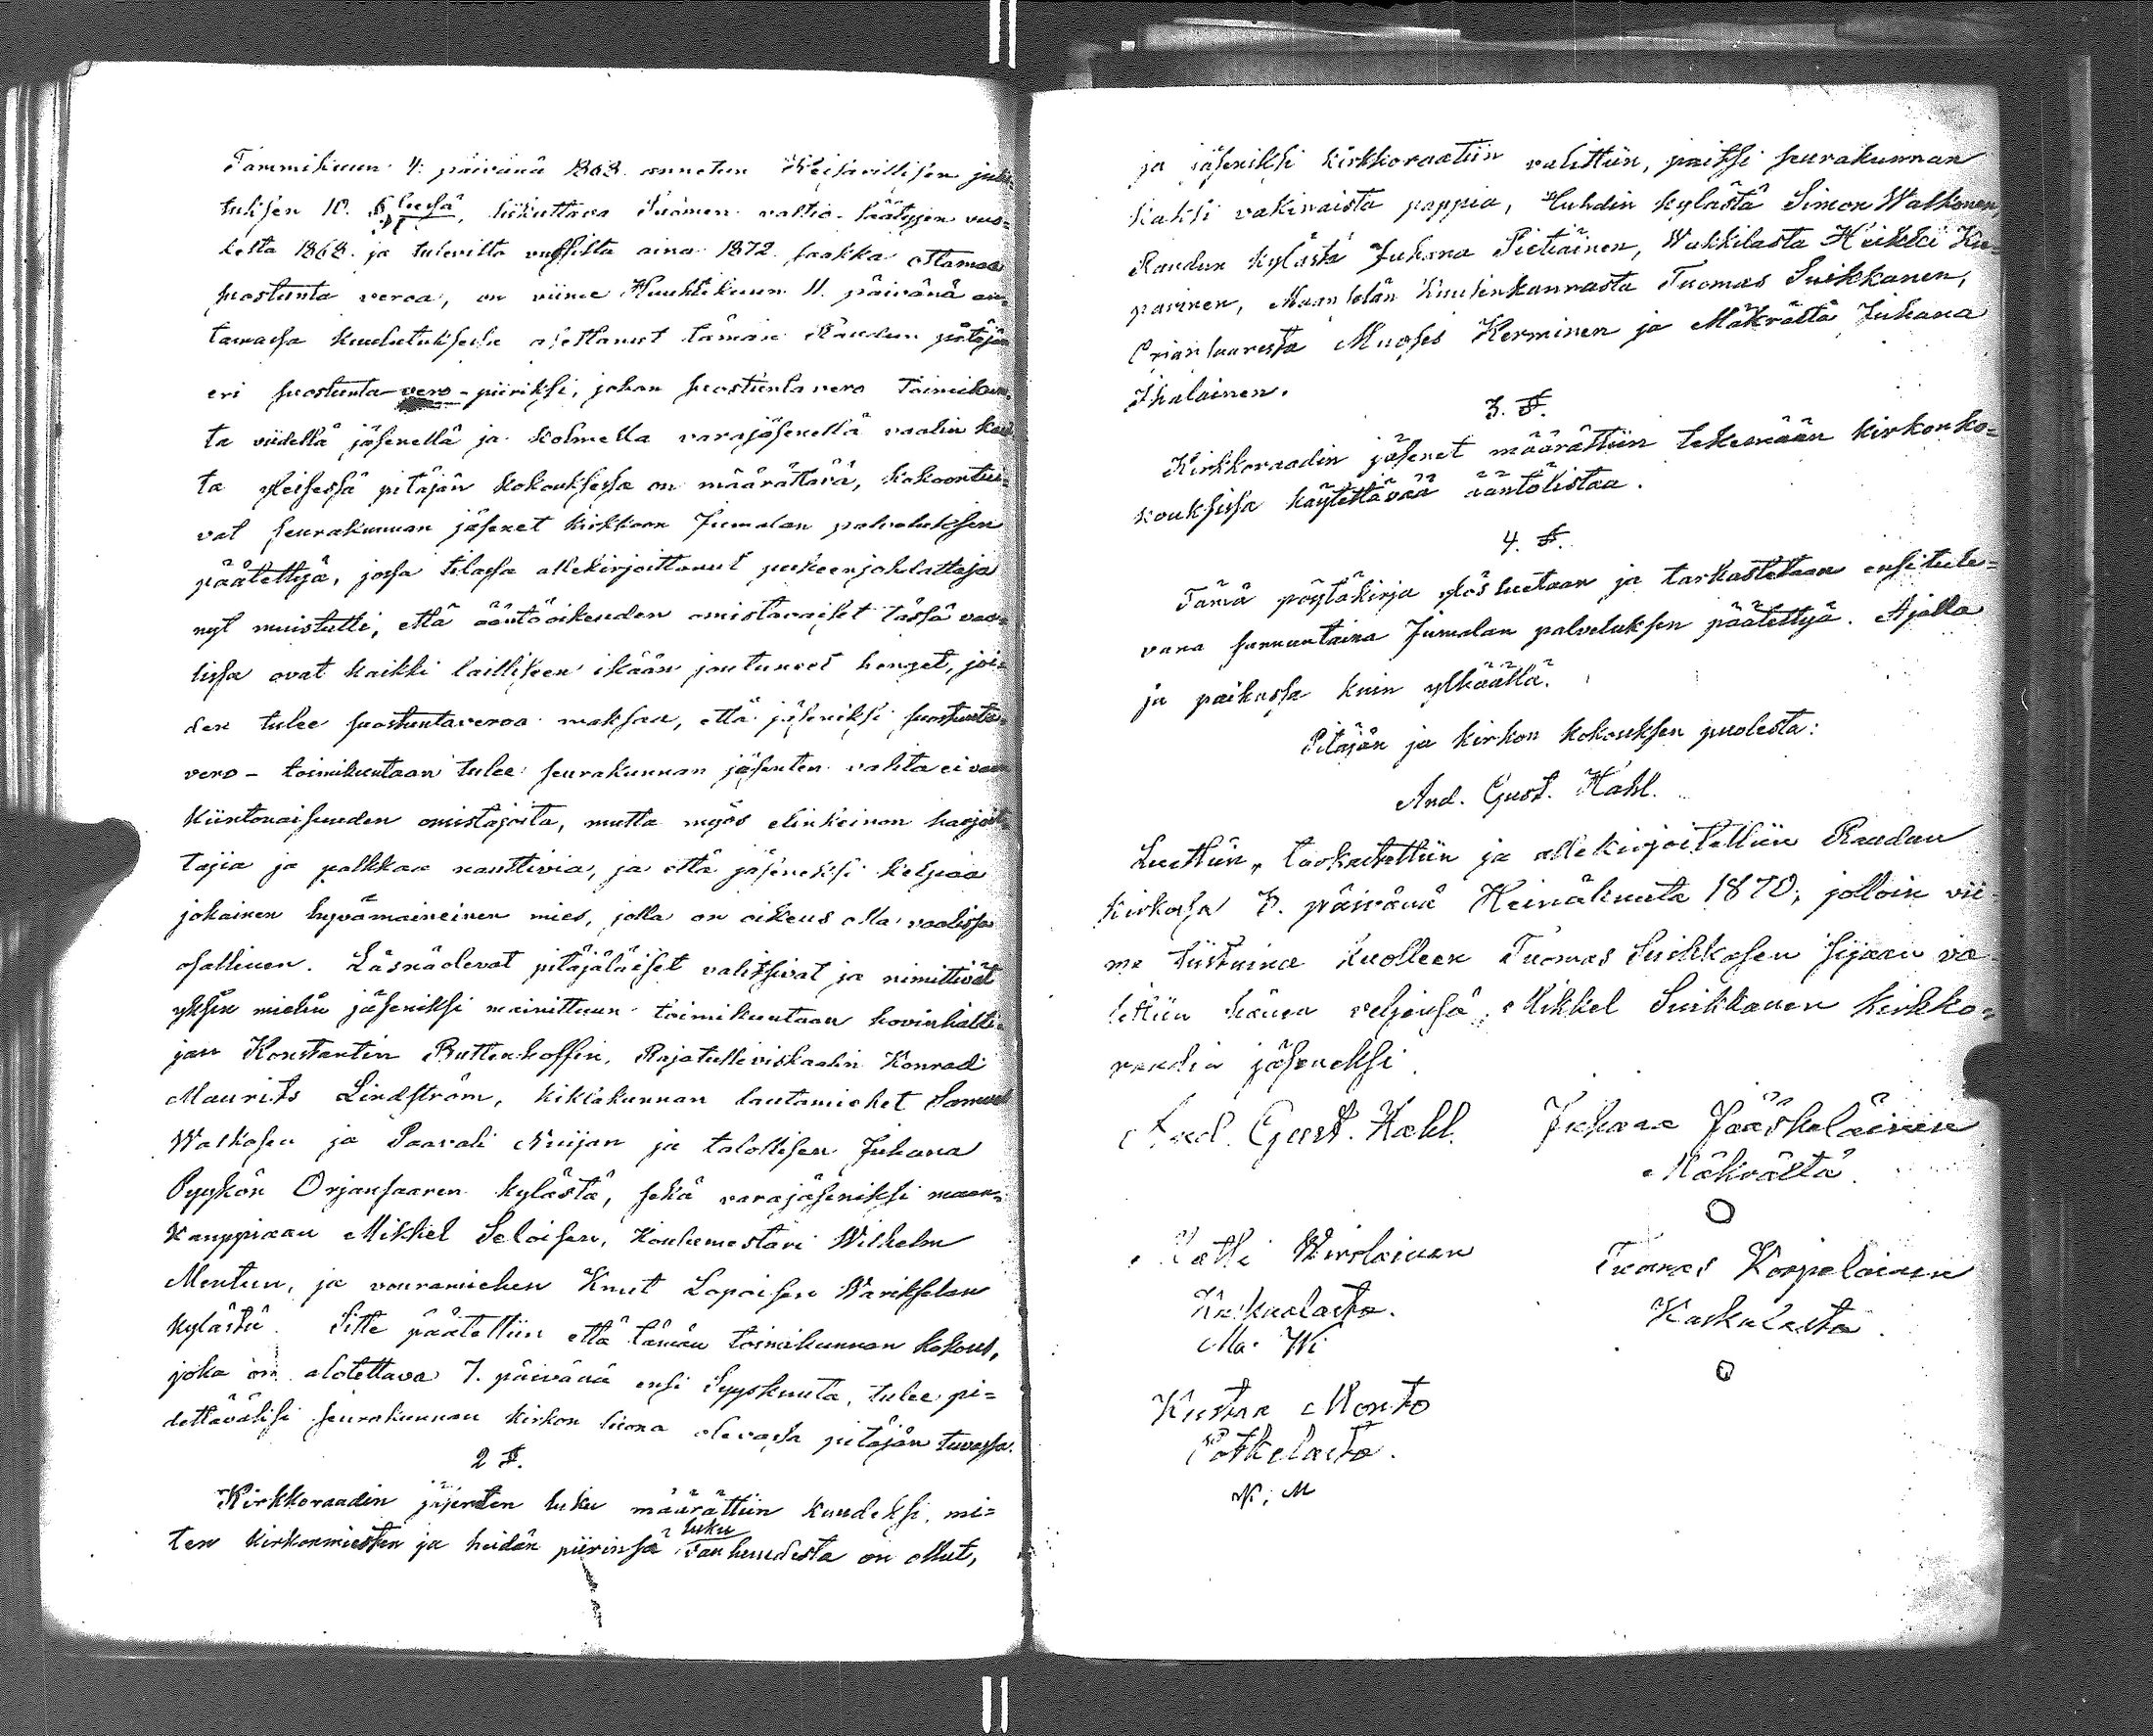 Tammikuun 4. päivänä 1868 annetun Keisarillisen julis-
tuksen 10. §:ssä, liikuttava Suomen valtio-säätyjen vuo-
delta 1868 ja tulevilta vuosilta aina 1872 saakka ottamaa
suostunta veroa, on viime Huuhtikuun 11. päivänä an-
tamassa kuulutuksessa asettanut tämän Raudun pitäjän
eri suostunta-vero-piiriksi, johon suostunta vero Toimikun-
ta viidellä jäsenellä ja kolmella varajäsenellä vaalin kaut-
ta yleisessä pitäjän kokouksessa on määrättävä, kokoontui-
vat seurakunnan jäsenet kirkkoon Jumalan palveluksen
päätettyä, jossa tilassa allekirjoittanut puheenjohdattaja
nyt muistutti, että ääntöoikeuden omistavaiset tässä vaa-
lissa ovat kaikki lailliseen ikään joutuneet henget, joi-
den tulee suostuntaveroa maksaa, että jäseniksi suostunta-
vero-toimikuntaan tulee seurakunnan jäsenten valita ei vaan
kiintonaisuuden omistajoita, mutta myös elinkeinon harjoit-
tajia ja palkkaa nauttivia, ja että jäseneksi kelpaa
jokainen hyvämaineinen mies, jolla on oikeus olla vaalissa
osallinen. Läsnäolevat pitäjäläiset valitsivat ja nimittivät
yksin mielin jäseniksi mainittuun toimikuntaan hovinhalti-
jan Konstantin Buttenhoffin, Rajatulliviskaalin Konrad
Maurits Lindström, kihlakunnan lautamiehet Samuel
Walkosen ja Paavali Nuijan ja talollisen Juhana
Pyykön Orjansaaren kylästä, sekä varajäseniksi maan-
kauppiaan Mikkel Seloisen, Koulumestari Wilhelm
Mentun, ja vouramiehen Knut Lopoisen Warikselan
kylästä. Sitte päätettiin että tämän toimikunnan kokous,
joka on alotettava 7. päivänä ensi Syyskuuta, tulee pi-
dettäväksi seurakunnan kirkon luona olevassa pitäjän tuvassa.
2 §.
Kirkkoraadin jäsenten luku määrättiin kuudeksi, mi-
ten kirkonmiesten ja heidän piirinsä luku vanhuudesta on ollut,
ja jäseniksi kirkkoraatiin valittiin, paitsi seurakunnan
kaksi vakinaista pappia, Huhdin kylästä Simon Walkonen,
Raudun kylästä Juhana Pietiäinen, Wakkilasta Heikki Ku-
parinen, Maanselän Kuulenkannasta Tuomas Suikkanen,
Orjansaaresta Muoses Kerminen ja Mäkrältä Juhana
Ihalainen.
3. §.
Kirkkoraadin jäsenet määrättiin tekemään kirkonko-
kouksissa käytettävää ääntölistaa.
4. §.
Tämä pöytäkirja ylös luetaan ja tarkastetaan ensi tule-
vana sunnuntaina Jumalan palveluksen päätettyä. Ajalla
ja paikassa kuin ylhäällä.
Pitäjän ja kirkon kokouksen puolesta:
And. Gust. Hahl.
Luettiin, tarkastettiin ja allekirjoitettiin Raudun
kirkossa 3. päivänä Heinäkuuta 1870, jolloin vii-
me tiistaina kuolleen Tuomas Suikkasen sijaan va-
littiin hänen veljensä, Mikkel Suikkanen kirkko-
raadin jäseneksi.
And. Gust. Hahl. Juhana Jääskeläinen
Mäkrältä.
Matti Wirolainen Tuomas Korpelainen
Kaskaalasta. Kaskalasta.
Ma. Wi
Kustaa Monto
Potkelasta.
K. M